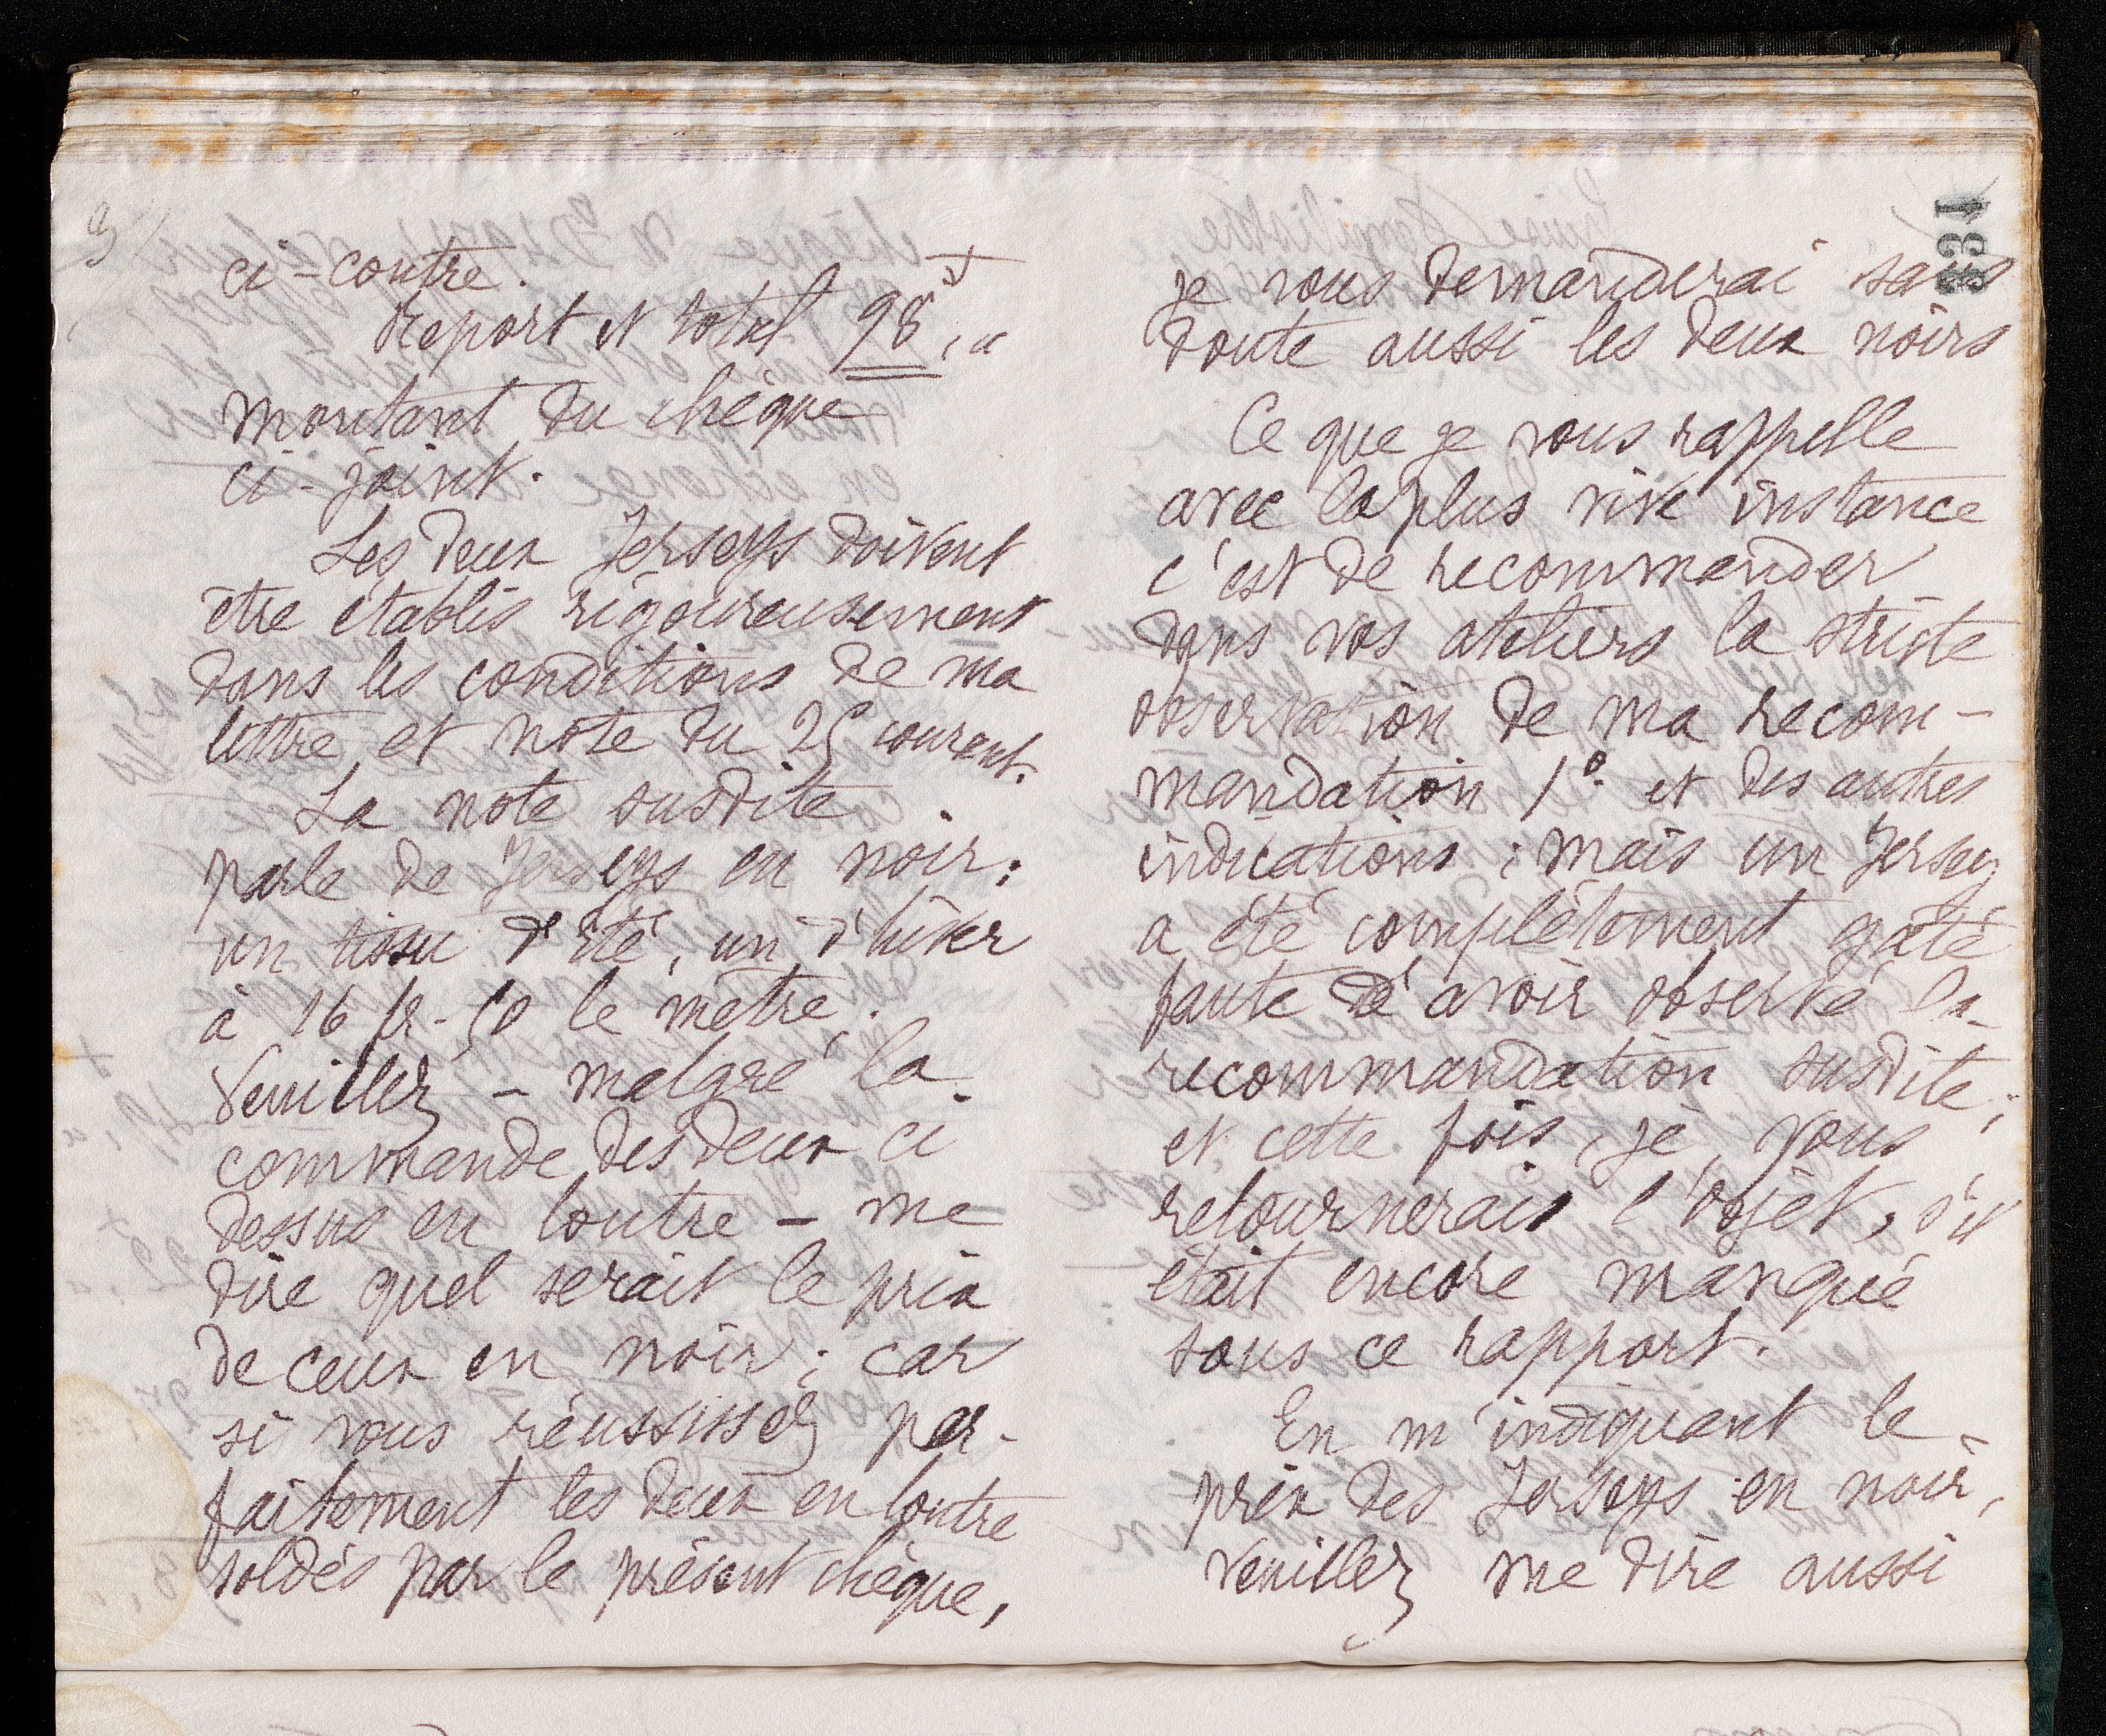 ci-contre.
Report et total 98f, "
montant du chèque
ci-joint.
Les deux Jerseys doivent
être établis rigoureusement
dans les conditions de ma
lettre et note du 25 courant.
La note susdite
parle de Jerseys en noir:
un tissu d'été, un d'hiver
à 16 fr-50 le mètre.
Veuillez - malgré la
commande des deux ci
dessus en loutre - me
dire quel serait le prix
de ceux en noir; car
si vous réussissez par-
faitement les deux en loutre
soldés par le présent chèque,
331
je vous demanderai sans
doute aussi les deux noirs
Ce que je vous rappelle
avec la plus vive instance
c'est de recommander
dans vos ateliers la stricte
observation de ma recom-
mandation 1° et des autres
indications; mais un Jersey
a été complètement gâté
faute d'avoir observé la
recommandation susdite;
et cette fois, je vous
retournerais l'objet, s'il
était encore manqué
sous ce rapport.
En m'indiquant le
prix des Jerseys en noir,
veuillez me dire aussi